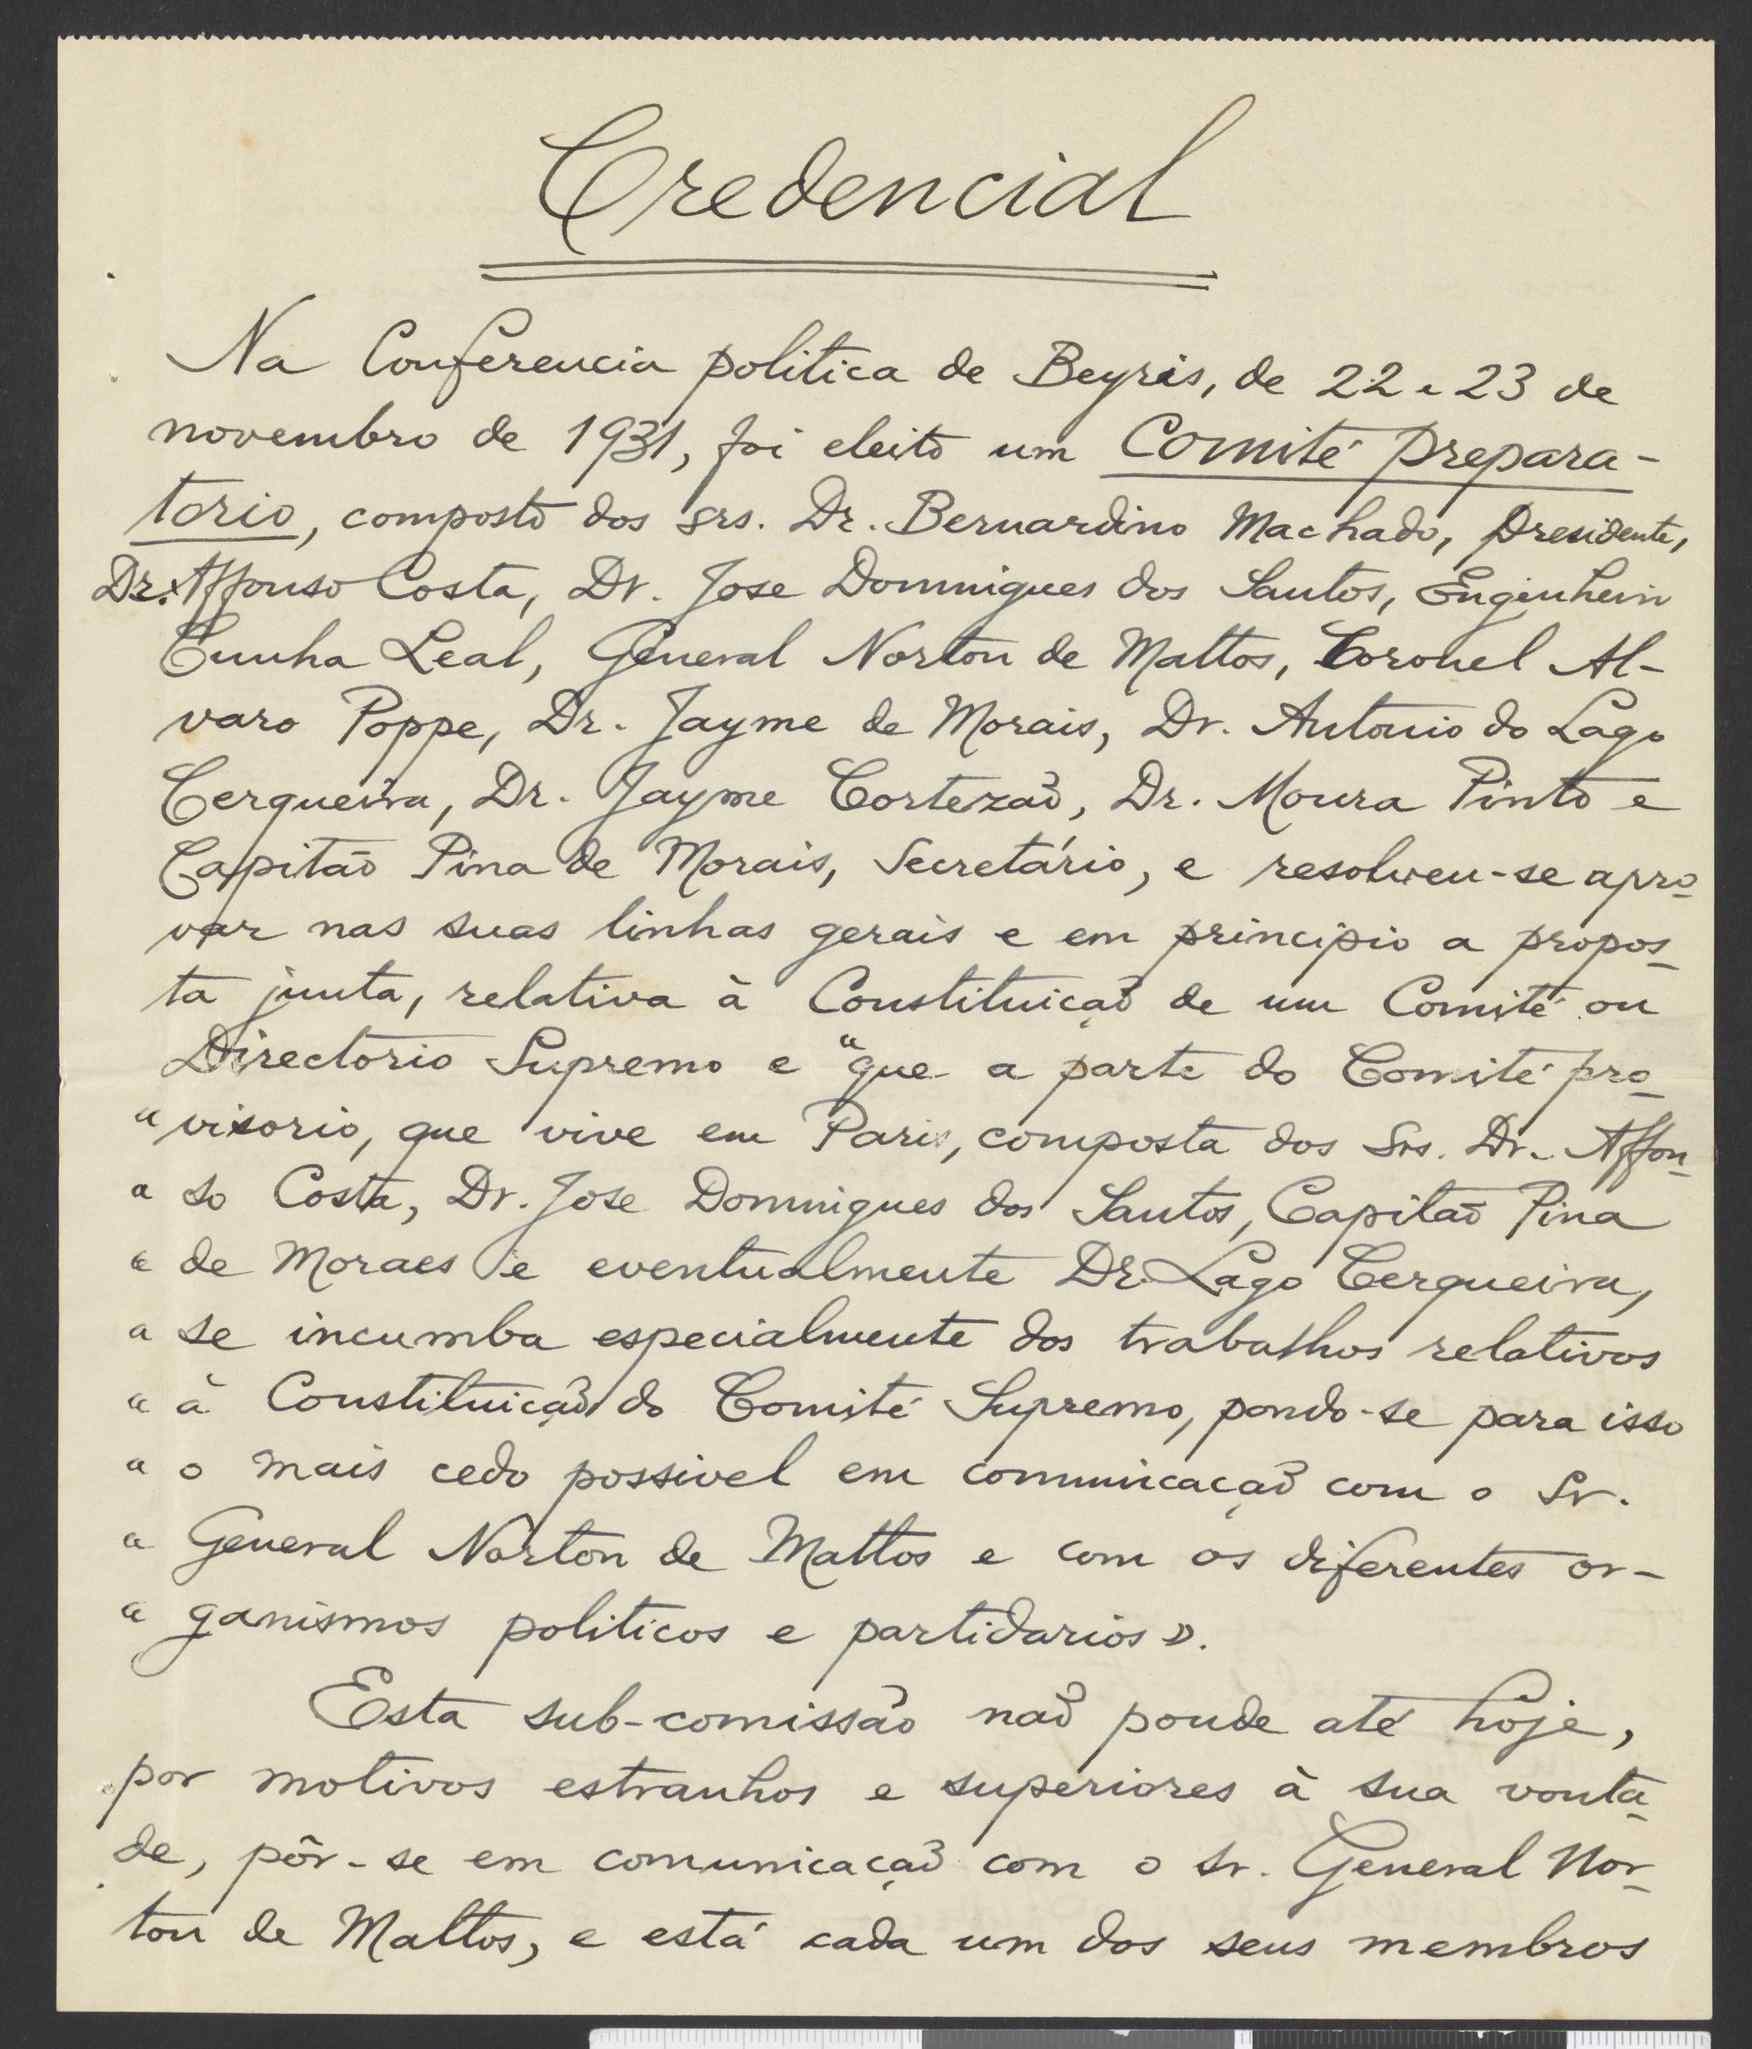 Credencial
Na Conferencia politica de Beyris, de 22 e 23 de
novembro de 1931, foi eleito um Comité prepara-
torio, composto dos srs. Dr. Bernardino Machado, Presidente,
Dr. Affonso Costa, Dr. Jose Domingues dos Santos, Engenheiro
Cunha Leal, General Norton de Mattos, Coronel Al-
varo Poppe, Dr. Jayme de Morais, Dr. Antonio do Lago
Cerqueira, Dr. Jayme Cortezão, Dr. Moura Pinto e
Capitão Pina de Morais, Secretário, e resolveu-se apro-
var nas suas linhas gerais e em principio a propos-
ta junta, relativa à Constituição de um Comité ou
Directorio Supremo e "que a parte do Comité pro-
" visorio, que vive em Paris, composta dos Srs. Dr. Affon-
" so Costa, Dr. Jose Domingues dos Santos, Capitão Pina
" de Moraes e eventualmente Dr. Lago Cerqueira,
" se incumba especialmente dos trabalhos relativos
" à Constituição do Comité Supremo, pondo-se para isso
" o mais cedo possivel em comunicação com o Sr.
" General Norton de Mattos e com os diferentes or-
" ganismos politicos e partidarios".
Esta sub-comissão não poude até hoje,
por motivos estranhos e superiores à sua vonta-
de, pôr-se em comunicação com o sr. General Nor-
ton de Mattos, e está cada um dos seus membros